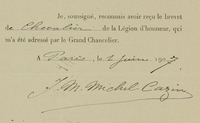 Je, soussigné, reconnais avoir reçu le brevet
de Chevalier de la Légion d'honneur, qui
m'a été adressé par le Grand Chancelier.
A Paris, le 2 juin 1907
J. M. Michel Cazin